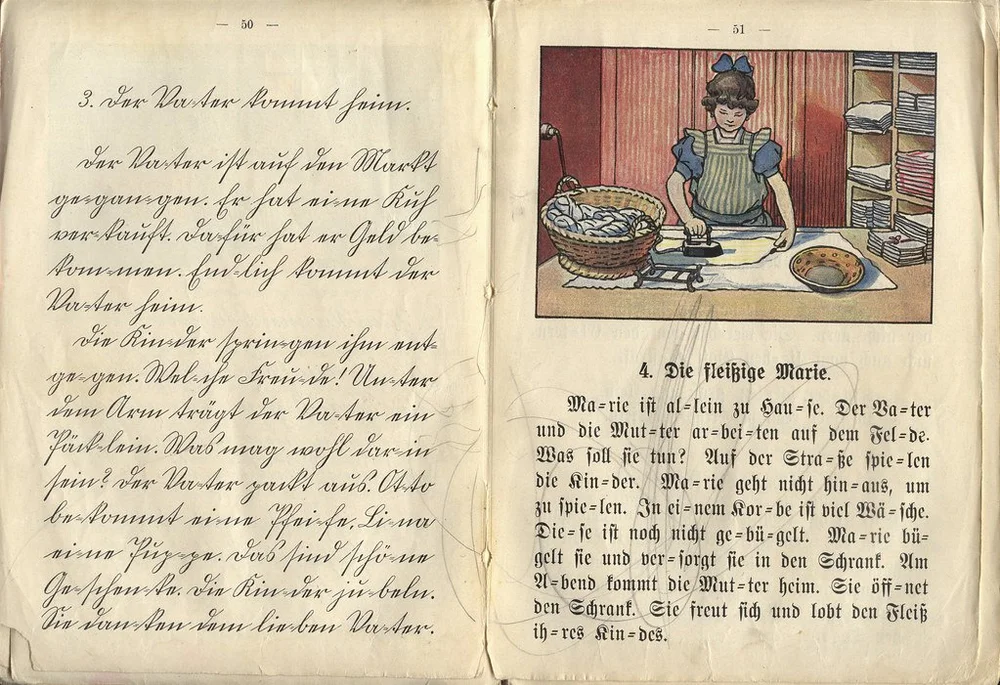 — 50 —
3. Der Va-ter kommt heim.
Der Va-ter ist auf den Markt
ge-gan-gen. Er hat ei-ne Kuh
ver-kauft. Da-für hat er Geld be-
kom-men. End-lich kommt der
Va-ter heim.
Die Kin-der sprin-gen ihm ent-
ge-gen. Wel-che Freu-de! Un-ter
dem Arm trägt der Va-ter ein
Päck-lein. Was mag wohl dar-in
sein? Der Va-ter packt aus. Ot-to
be-kommt ei-ne Pfei-fe, Li-na
ei-ne Pup-pe. Das sind schö-ne
Ge-schen-ke. Die Kin-der ju-beln.
Sie dan-ken dem lie-ben Va-ter.
— 51 —
4. Die fleißige Marie.
Ma-rie ist al-lein zu Hau-se. Der Va-ter
und die Mut-ter ar-bei-ten auf dem Fel-de.
Was soll sie tun? Auf der Stra-ße spie-len
die Kin-der. Ma-rie geht nicht hin-aus, um
zu spie-len. In ei-nem Kor-be ist viel Wä-sche.
Die-se ist noch nicht ge-bü-gelt. Ma-rie bü-
gelt sie und ver-sorgt sie in den Schrank. Am
A-bend kommt die Mut-ter heim. Sie öff-net
den Schrank. Sie freut sich und lobt den Fleiß
ih-res Kin-des.